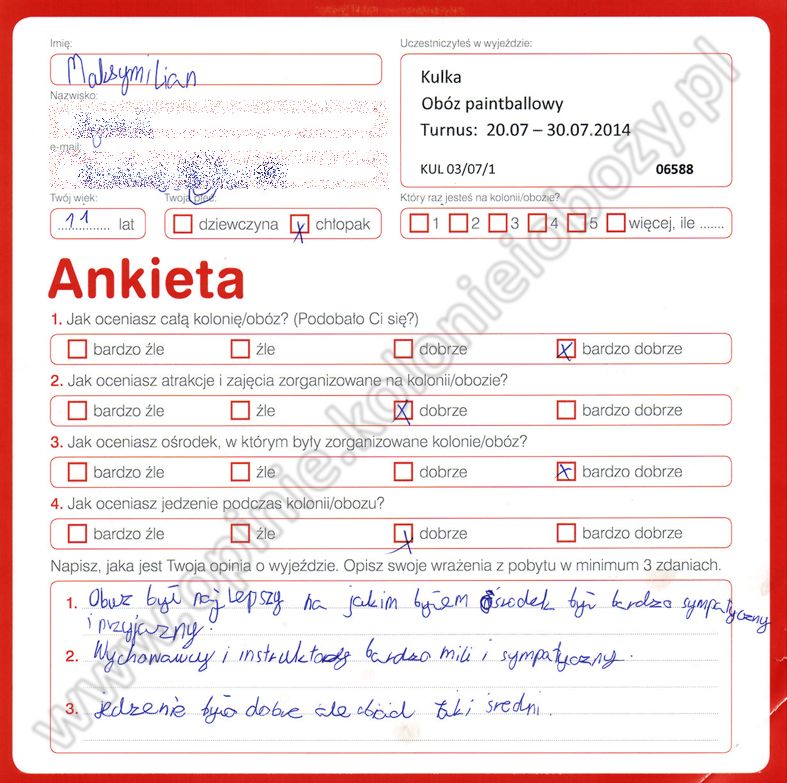 Imię:
Maksymilian
Nazwisko:
e-mail:
Twój wiek:
11 lat
Twoja płeć:
dziewczyna
chłopak
Uczestniczyłeś w wyjeździe:
Kulka
Obóz paintballowy
Turnus: 20.07 – 30.07.2014
KUL 03/07/1 06588
Który raz jesteś na kolonii/obozie?
1 2 3 4 5 więcej, ile .......
Ankieta
1. Jak oceniasz całą kolonię/obóz? (Podobało Ci się?)
bardzo źle źle dobrze bardzo dobrze
2. Jak oceniasz atrakcje i zajęcia zorganizowane na kolonii/obozie?
bardzo źle źle dobrze bardzo dobrze
3. Jak oceniasz ośrodek, w którym były zorganizowane kolonie/obóz?
bardzo źle źle dobrze bardzo dobrze
4. Jak oceniasz jedzenie podczas kolonii/obozu?
bardzo źle źle dobrze bardzo dobrze
Napisz, jaka jest Twoja opinia o wyjeździe. Opisz swoje wrażenia z pobytu w minimum 3 zdaniach.
1. Obuz był najlepszy na jakim byłem ośrodek był bardzo sympatyczny
i przyjazny.
2. Wychowawcy i instruktorzy bardzo mili i sympatyczny.
3. jedzenie było dobre ale obiad taki średni.
www.opinie.kolonieiobozy.pl